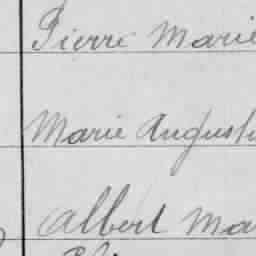 Pierre Marie
Marie August
Albert Ma